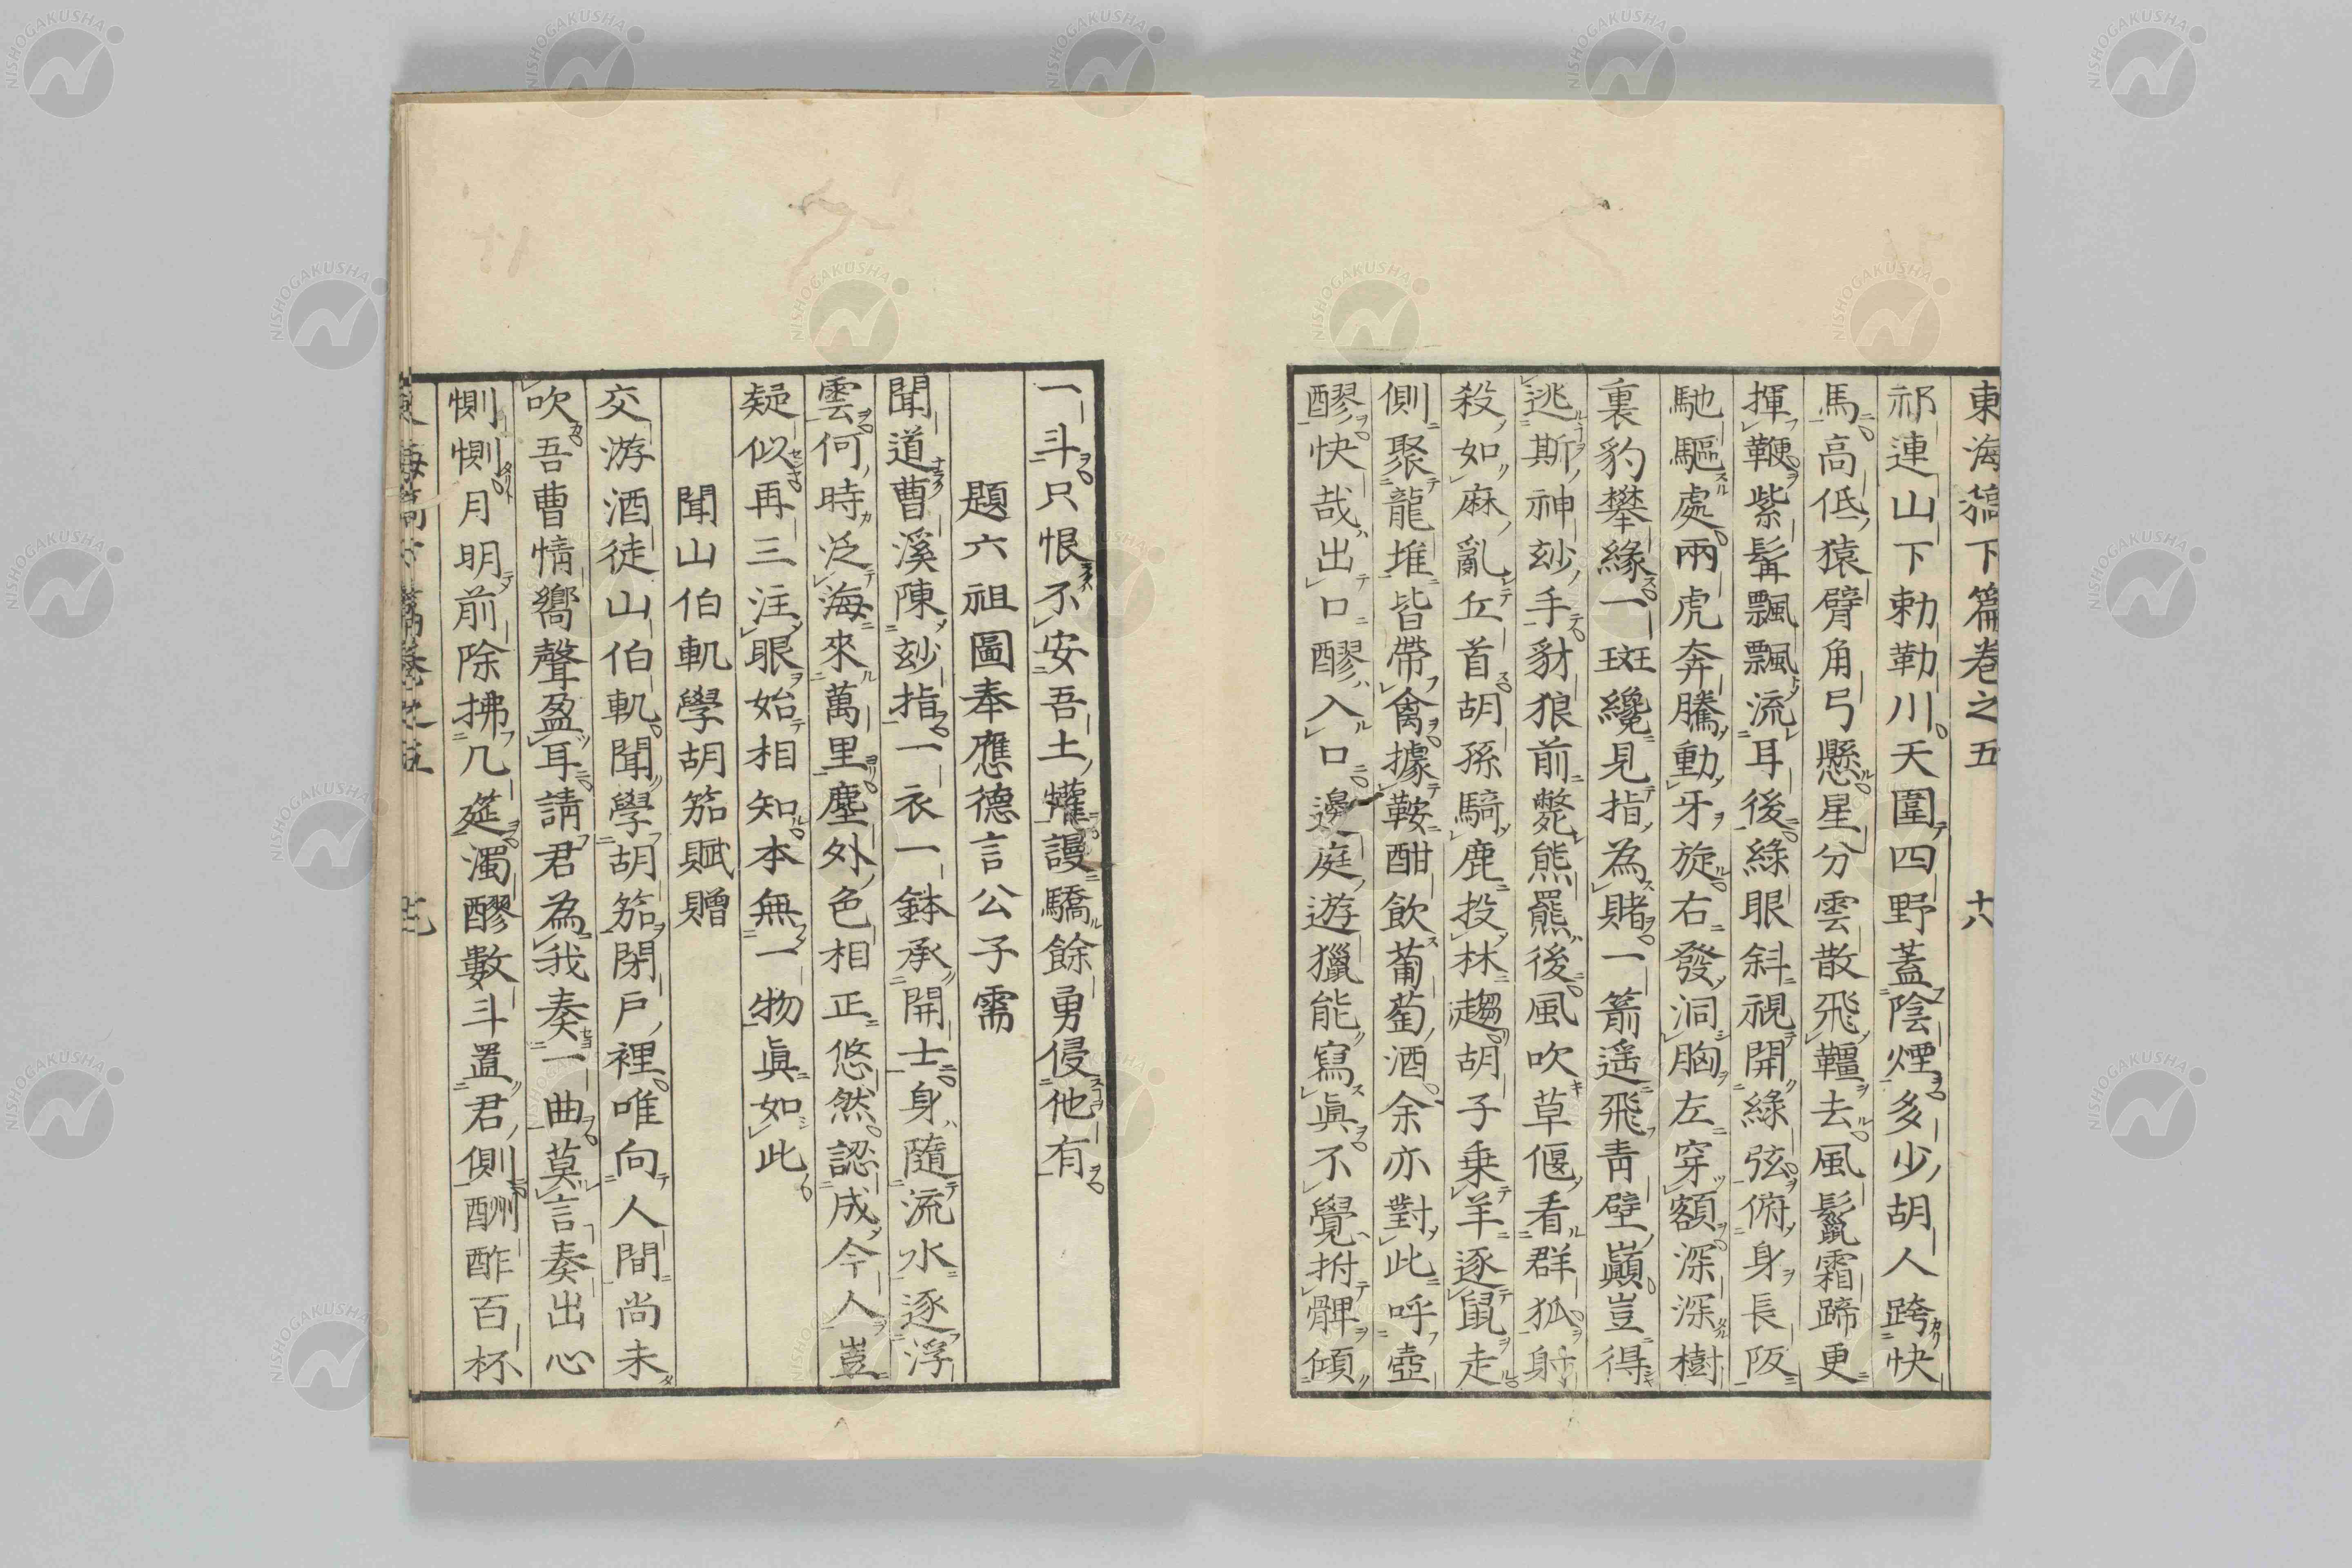 東海稿下篇卷之五 十六
祁連山下勅勒川天圍四野蓋陰煙多少胡人跨快
馬高低猿臂角弓懸星分雲散飛韁去風鬣霜蹄更
揮鞭紫髯飄飄流耳後綠眼斜視開綠弦俯身長阪
馳驅處兩虎奔騰動牙旋右發洞胸左穿額深深樹
裏豹攀緣一斑纔見指為賭一箭遥飛青壁巔豈得
逃斯神玅手豺狼前斃熊羆後風吹草偃看群狐射
殺如麻亂丘首胡孫騎鹿投林趨胡子乗羊逐鼠走
側聚龍堆皆帶禽據鞍酣飲葡萄酒余亦對此呼壺
醪快哉出口醪入口邊庭遊獵能寫眞不覺拊髀傾
一斗只恨不安吾土讙謾驕餘勇侵他有
題六祖圖奉應德言公子需
聞道曹溪陳玅指一衣一鉢承開士身隨流水逐浮
雲何時泛海來萬里塵外色相正悠然認成今人豈
疑似再三注眼始相知本無一物眞如此
聞山伯軏學胡笳賦贈
交游酒徒山伯軏聞學胡笳閉戸裡唯向人間尚未
吹吾曹情嚮聲盈耳請君為我奏一曲莫言奏出心
惻惻月明前除拂几筵濁醪數斗置君側酬酢百杯